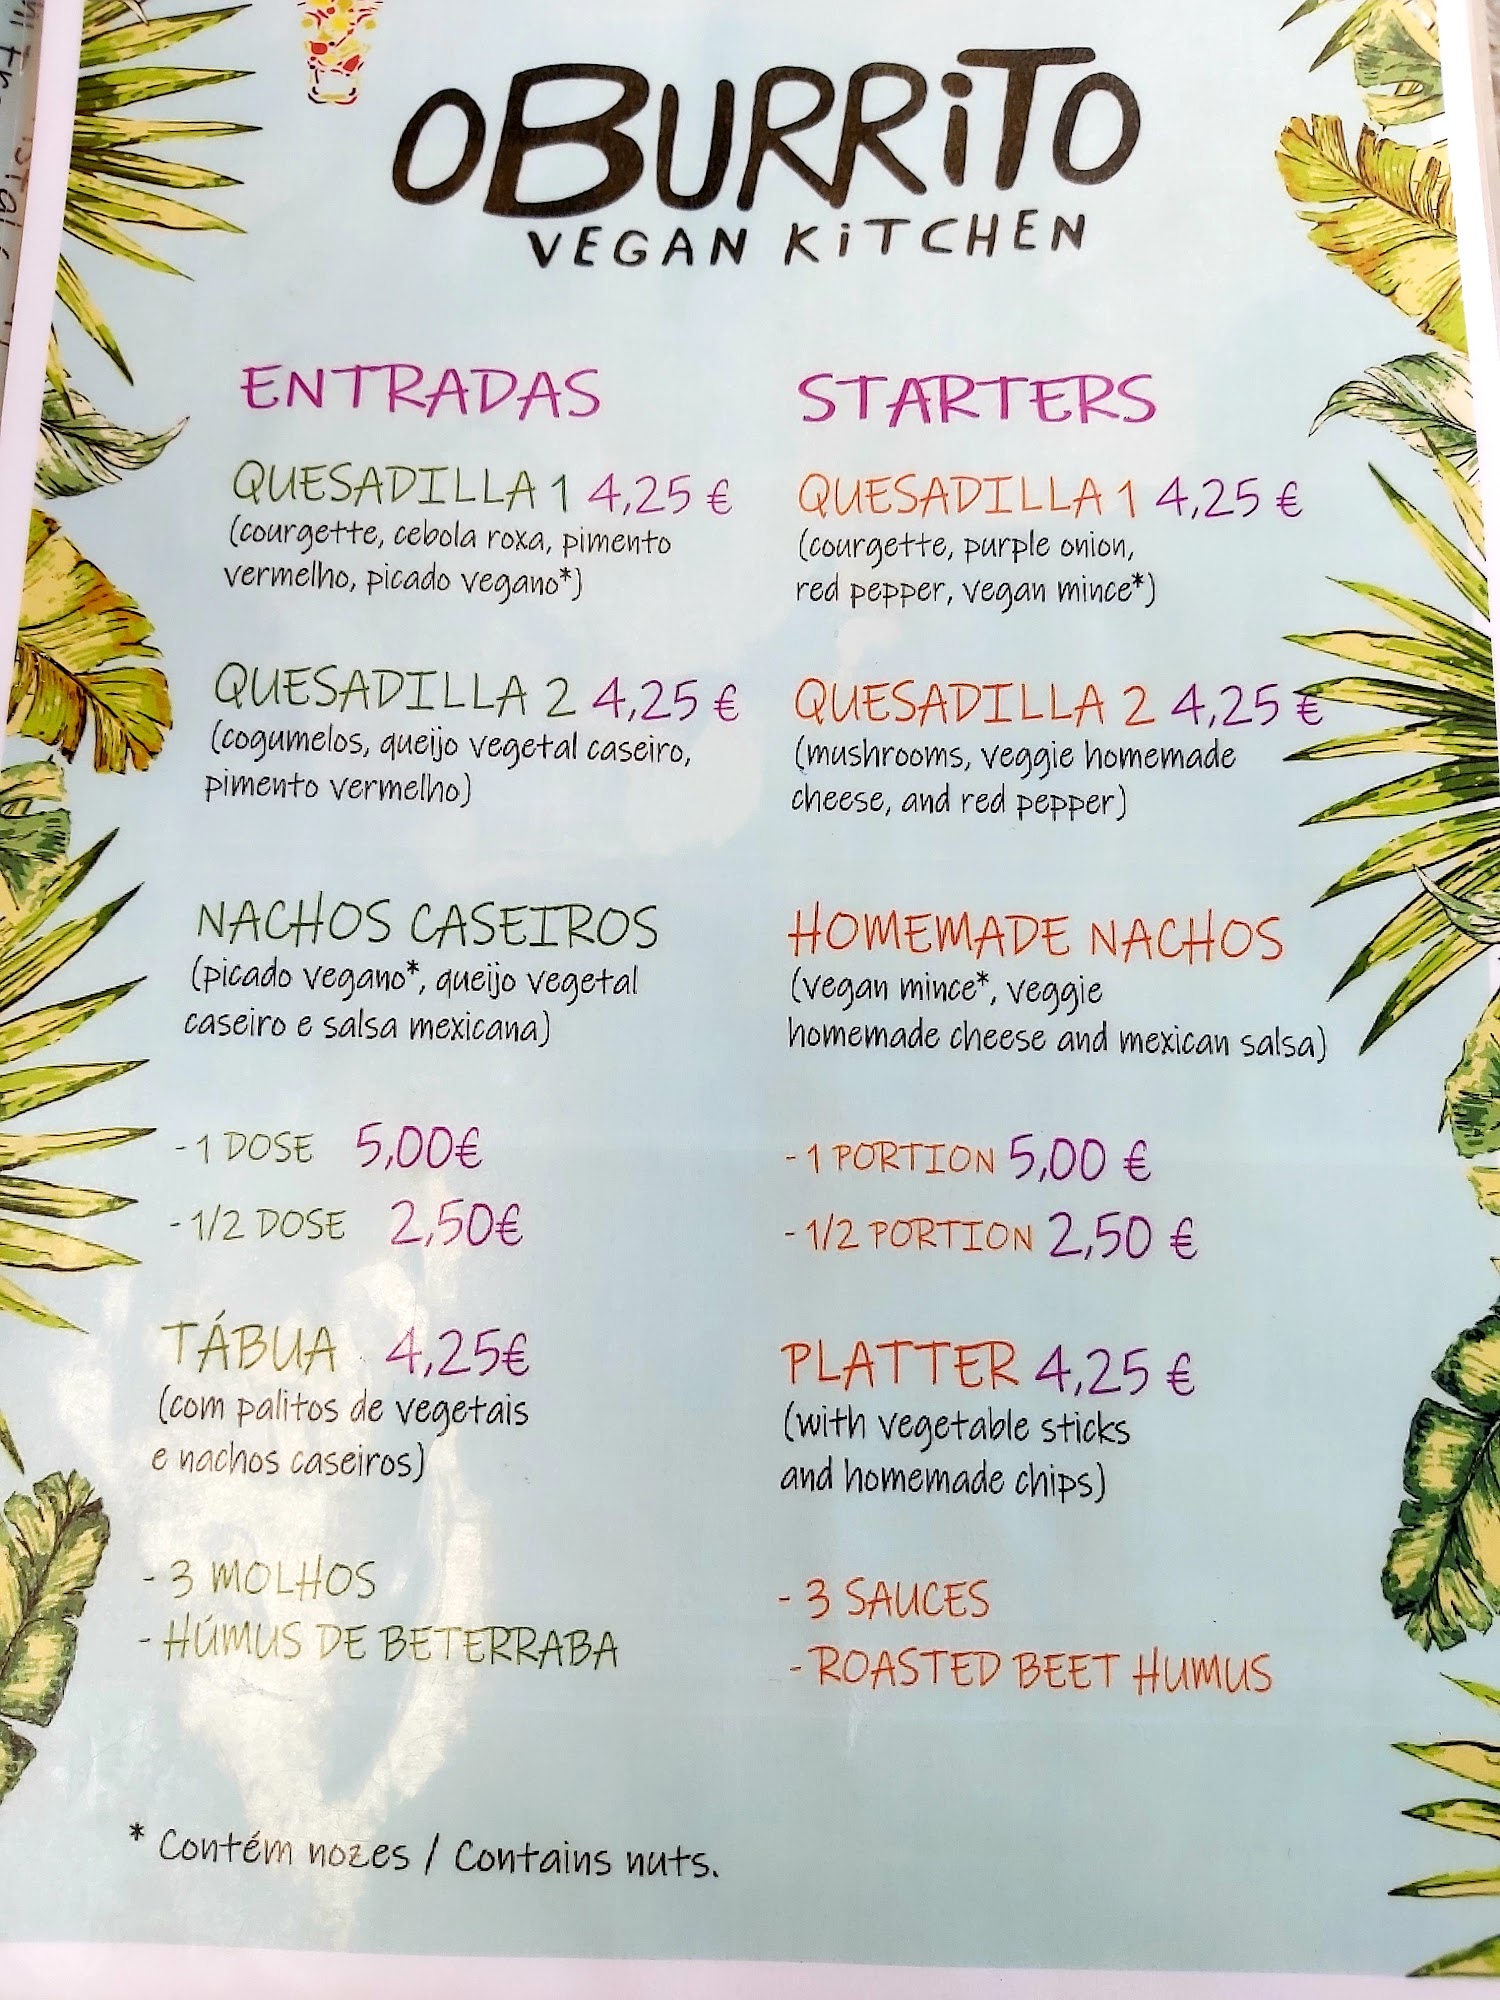 OBURRiTO
VEGAN KiTCHEN
ENTRADAS
QUESADILLA 1 4,25 €
(courgette, cebola roxa, pimento
vermelho, picado vegano*)
QUESADILLA 2 4,25 €
(cogumelos, queijo vegetal caseiro,
pimento vermelho)
NACHOS CASEIROS
(picado vegano*, queijo vegetal
caseiro e salsa mexicana)
- 1 DOSE 5,00€
- 1/2 DOSE 2,50€
TÁBUA 4,25€
(com palitos de vegetais
e nachos caseiros)
- 3 MOLHOS
- HÚMUS DE BETERRABA
STARTERS
QUESADILLA 1 4,25 €
(courgette, purple onion,
red pepper, vegan mince*)
QUESADILLA 2 4,25 €
(mushrooms, veggie homemade
cheese, and red pepper)
HOMEMADE NACHOS
(vegan mince*, veggie
homemade cheese and mexican salsa)
- 1 PORTION 5,00 €
- 1/2 PORTION 2,50 €
PLATTER 4,25 €
(with vegetable sticks
and homemade chips)
- 3 SAUCES
- ROASTED BEET HUMUS
* Contém nozes / Contains nuts.